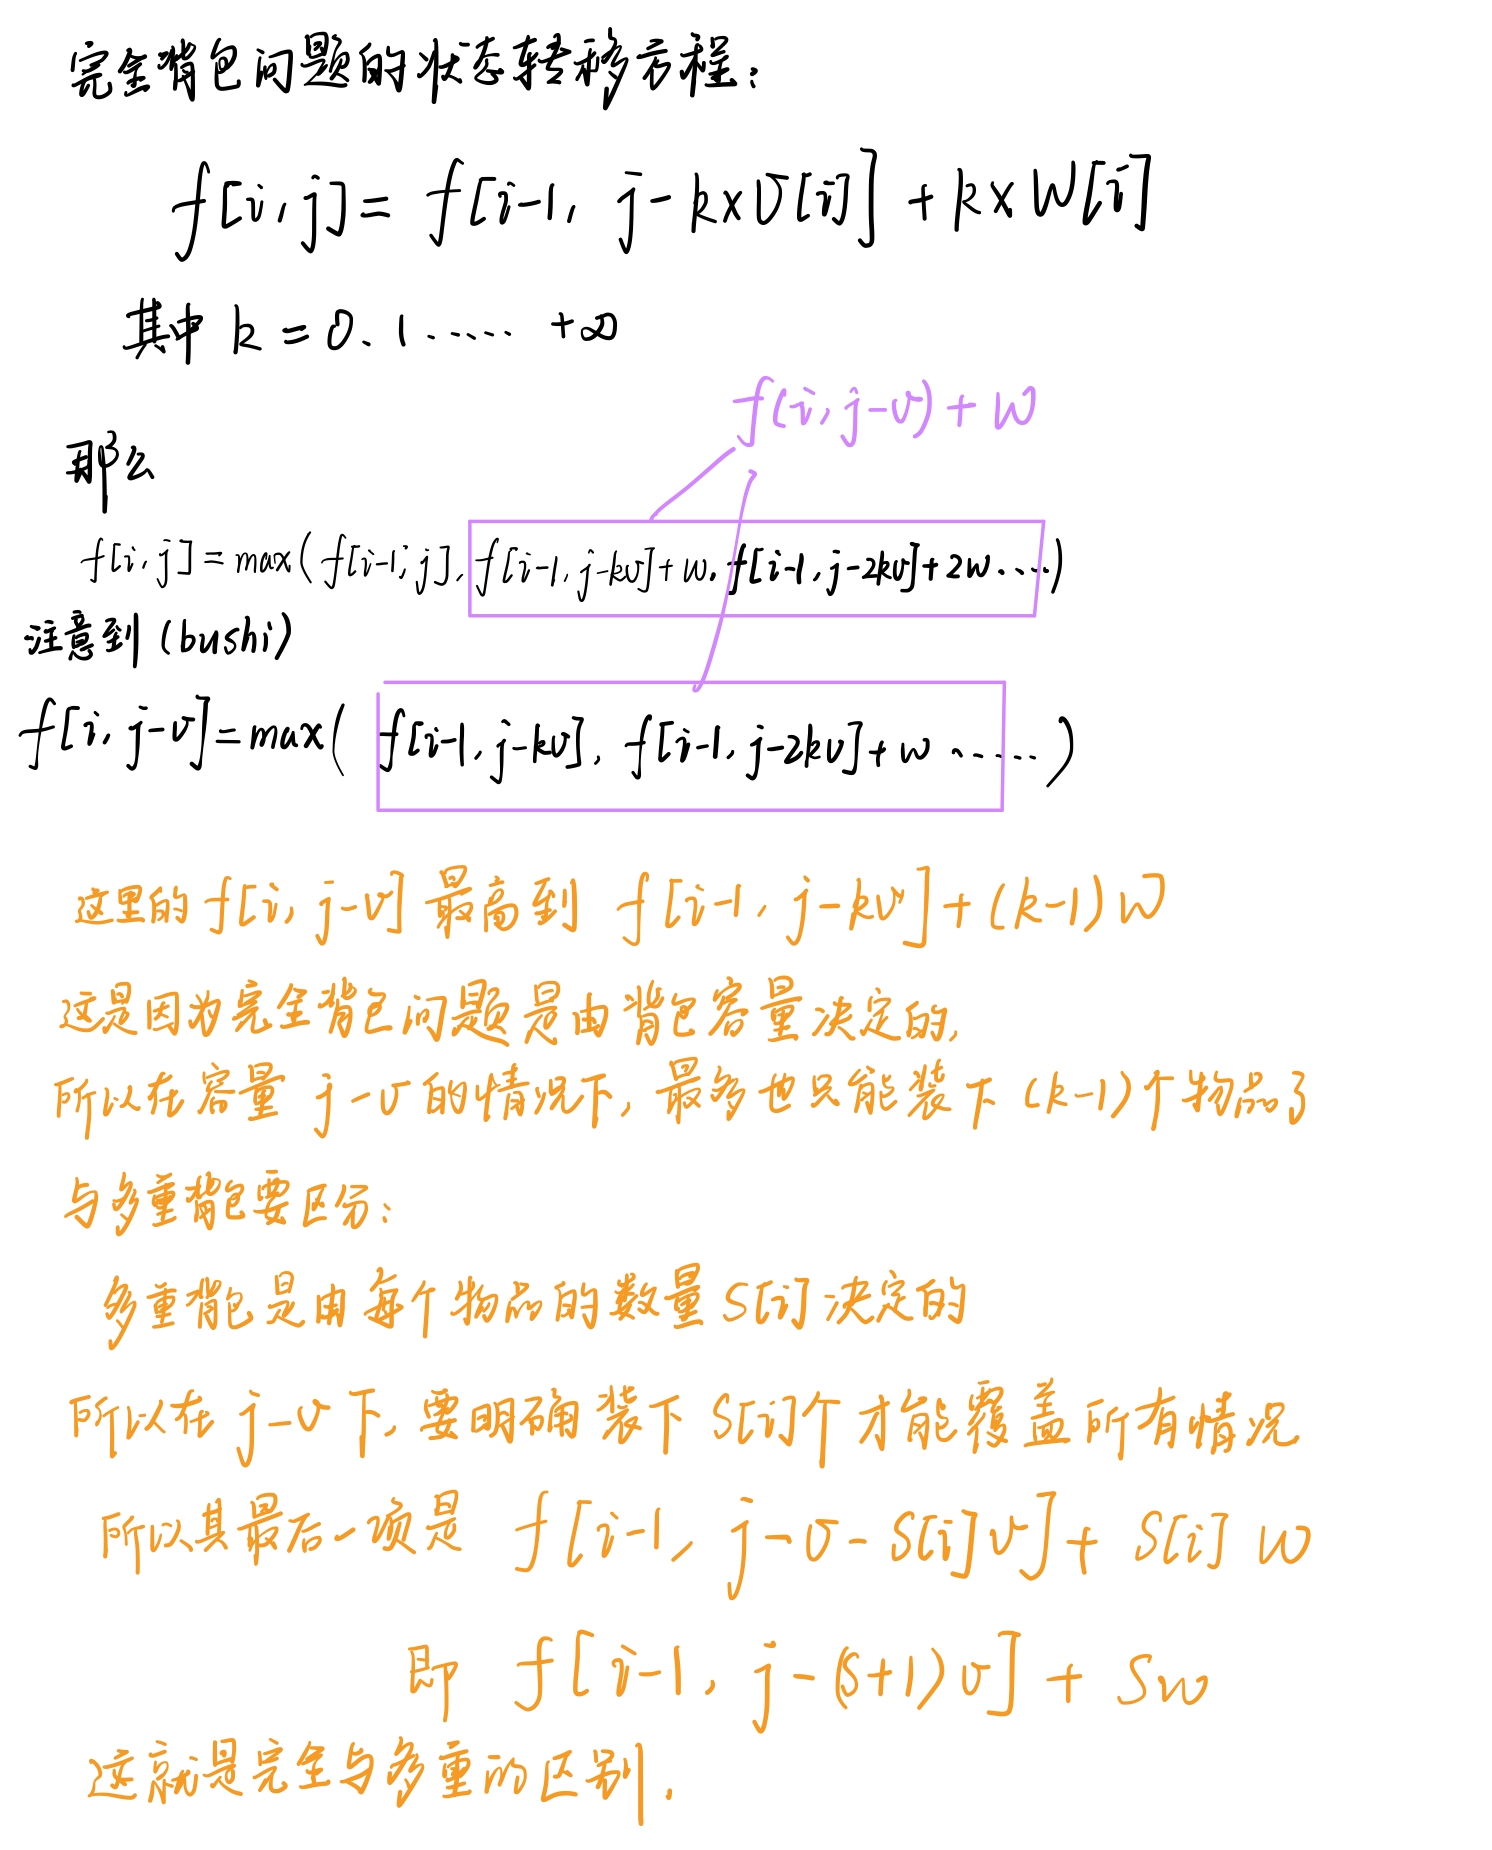 完全背包问题的状态转移方程:
f[i, j] = f[i-1, j - k×v[i]] + k×W[i]
其中 k = 0、1 ...... +∞
f(i, j-v) + w
那么
f[i, j] = max( f[i-1, j], f[i-1, j-kv]+w, f[i-1, j-2kv]+2w ....)
注意到 (bushi)
f[i, j-v] = max( f[i-1, j-kv], f[i-1, j-2kv]+w ......)
这里的 f[i, j-v] 最高到 f[i-1, j-kv] + (k-1)w
这是因为完全背包问题是由背包容量决定的,
所以在容量 j-v 的情况下, 最多也只能装下 (k-1)个物品了
与多重背包要区分:
多重背包是由每个物品的数量 S[i] 决定的
所以在 j-v 下, 要明确装下 S[i]个才能覆盖所有情况
所以其最后一项是 f[i-1, j-v-S[i]v] + S[i] w
即 f[i-1, j-(S+1)v] + Sw
这就是完全与多重的区别.